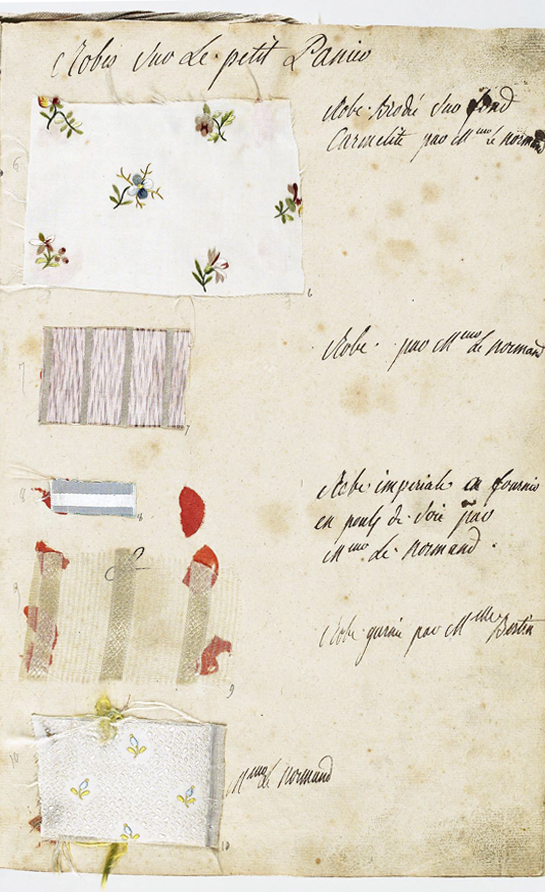 Robes Sur Le petit Panier
Robe Brodée Sur fond
Carmelite par Mme Le Normand
6
6
Robe par Mme Le Normand
7
7
Robe impériale en fournie
en poult de Soie par
Mme Le Normand.
8
8
Robe garnie par Mlle Bertin
9
9
Mme Le Normand
10
10